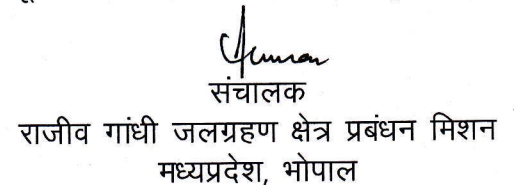 संचालक
राजीव गांधी जलग्रहण क्षेत्र प्रबंधन मिशन
मध्यप्रदेश, भोपाल